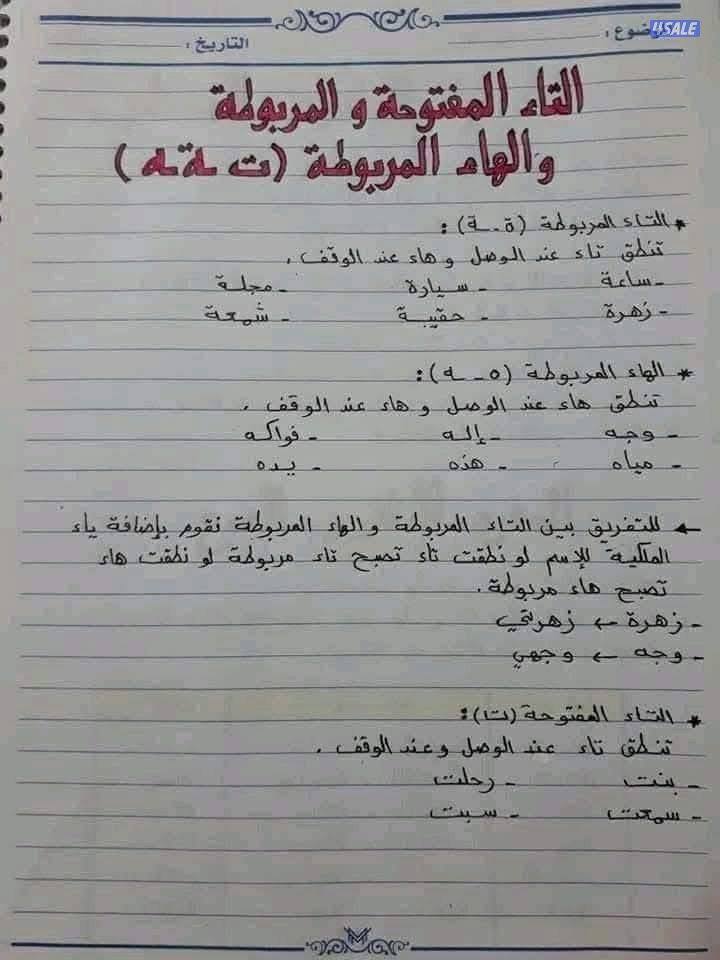 الموضوع : 4SALE
التاريخ :
التاء المفتوحة و المربوطة
والهاء المربوطة (ت ـة ـه)
* التاء المربوطة (ة ـ ـة) :
تنطق تاء عند الوصل و هاء عند الوقف .
- ساعة - سيارة - مجلة
- زهرة - حقيبة - شمعة
* الهاء المربوطة (ه ـ ـه) :
تنطق هاء عند الوصل و هاء عند الوقف .
- وجه - إله - فواكه
- مياه - هذه - يده
← للتفريق بين التاء المربوطة والهاء المربوطة نقوم بإضافة ياء
الملكية للإسم لو نطقت تاء تصبح تاء مربوطة لو نطقت هاء
تصبح هاء مربوطة .
- زهرة ← زهرتي
- وجه ← وجهي
* التاء المفتوحة (ت) :
تنطق تاء عند الوصل وعند الوقف .
- بنت - رحلت
- سمعت - سبت